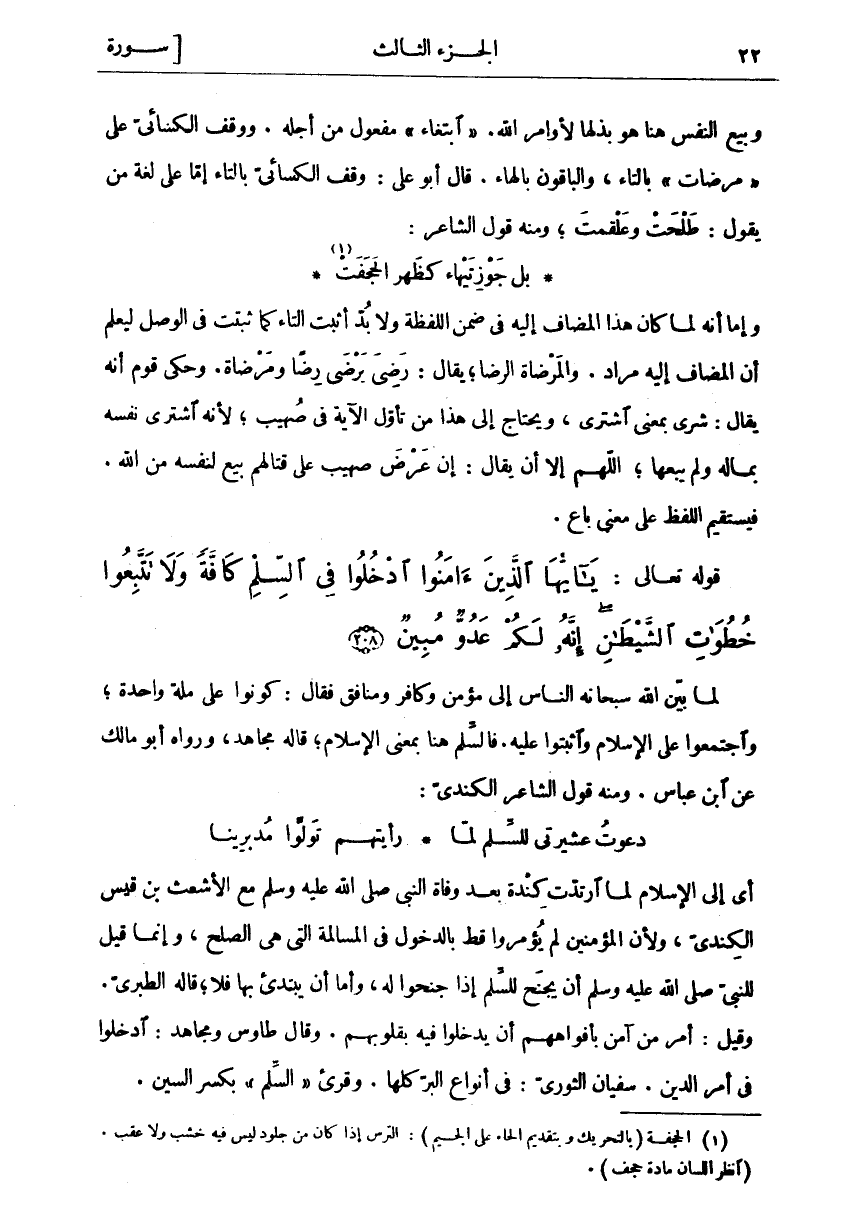 ٢٢ الجزء الثالث [ سورة
وبيع النفس هنا هو بذلها لأوامر الله. « ٱبتغاء » مفعول من أجله . ووقف الكسائىّ على
« مرضات » بالتاء ، والباقون بالهاء . قال أبو على : وقف الكسائىّ بالتاء إمّا على لغة من
يقول : طَلْحَتْ وعَلْقمتْ ؛ ومنه قول الشاعر :
* بل جَوْزِ تَيْهاء كظَهر الحَجَفَتْ (١) *
و إما أنه لما كان هذا المضاف إليه فى ضمن اللفظة ولا بُدّ أثبت التاء كما ثبتت فى الوصل ليعلم
أن المضاف إليه مراد . والمَرْضاة الرضا؛ يقال : رَضِىَ يَرْضَى رِضًا ومَرْضاة. وحكى قوم أنه
يقال : شرى بمعنى ٱشترى ، ويحتاج إلى هذا من تأوّل الآية فى صُهيب ؛ لأنه ٱشترى نفسه
بماله ولم يبعها ؛ اللّهم إلا أن يقال : إن عَرْضَ صهيب على قتالهم بيع لنفسه من الله .
فيستقيم اللفظ على معنى باع .
قوله تعالى : يَـٰٓأَيُّهَا ٱلَّذِينَ ءَامَنُوا ٱدْخُلُوا فِى ٱلسِّلْمِ كَآفَّةً وَلَا تَتَّبِعُوا
خُطُوَٰتِ ٱلشَّيْطَـٰنِ ۖ إِنَّهُۥ لَكُمْ عَدُوٌّ مُبِينٌ ٢٠٨
لما بيّن الله سبحانه الناس إلى مؤمن وكافر ومنافق فقال : كونوا على ملة واحدة ؛
وٱجتمعوا على الإسلام وٱثبتوا عليه. فالسَّلم هنا بمعنى الإسلام؛ قاله مجاهد، ورواه أبو مالك
عن ٱبن عباس . ومنه قول الشاعر الكندىّ :
دعوتُ عشيرتى للسَّلم لمّا * رأيتهم تَولَّوْا مُدبرِينا
أى إلى الإسلام لما ٱرتدّت كِنْدة بعد وفاة النبى صلى الله عليه وسلم مع الأشعث بن قيس
الكِندىّ ، ولأن المؤمنين لم يُؤمروا قط بالدخول فى المسالمة التى هى الصلح ، و إنما قيل
للنبىّ صلى الله عليه وسلم أن يجنَح للسَّلم إذا جنحوا له ، وأما أن يبتدئ بها فلا؛ قاله الطبرىّ.
وقيل : أمر من آمن بأفواههم أن يدخلوا فيه بقلوبهم . وقال طاوس ومجاهد : ٱدخلوا
فى أمر الدين . سفيان الثورىّ : فى أنواع البرّ كلها . وقرئ « السِّلم » بكسر السين .
(١) الحجفة (بالتحريك و بتقديم الحاء على الجيم) : الترس إذا كان من جلود ليس فيه خشب ولا عقب .
(ٱنظر اللسان مادة حجف) .